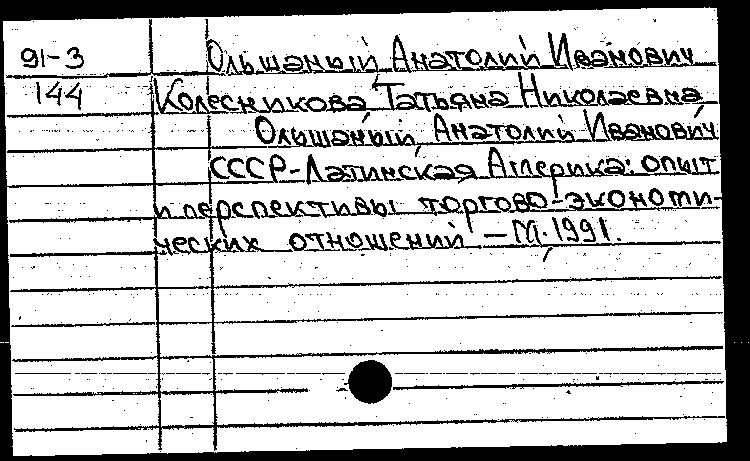 91-3 Ольшаный, Анатолий Иванович
144 Колесникова, Татьяна Николаевна
Ольшаный, Анатолий Иванович
СССР-Латинская Америка: опыт
и перспективы торгово-экономи-
ческих отношений. - М. 1991.